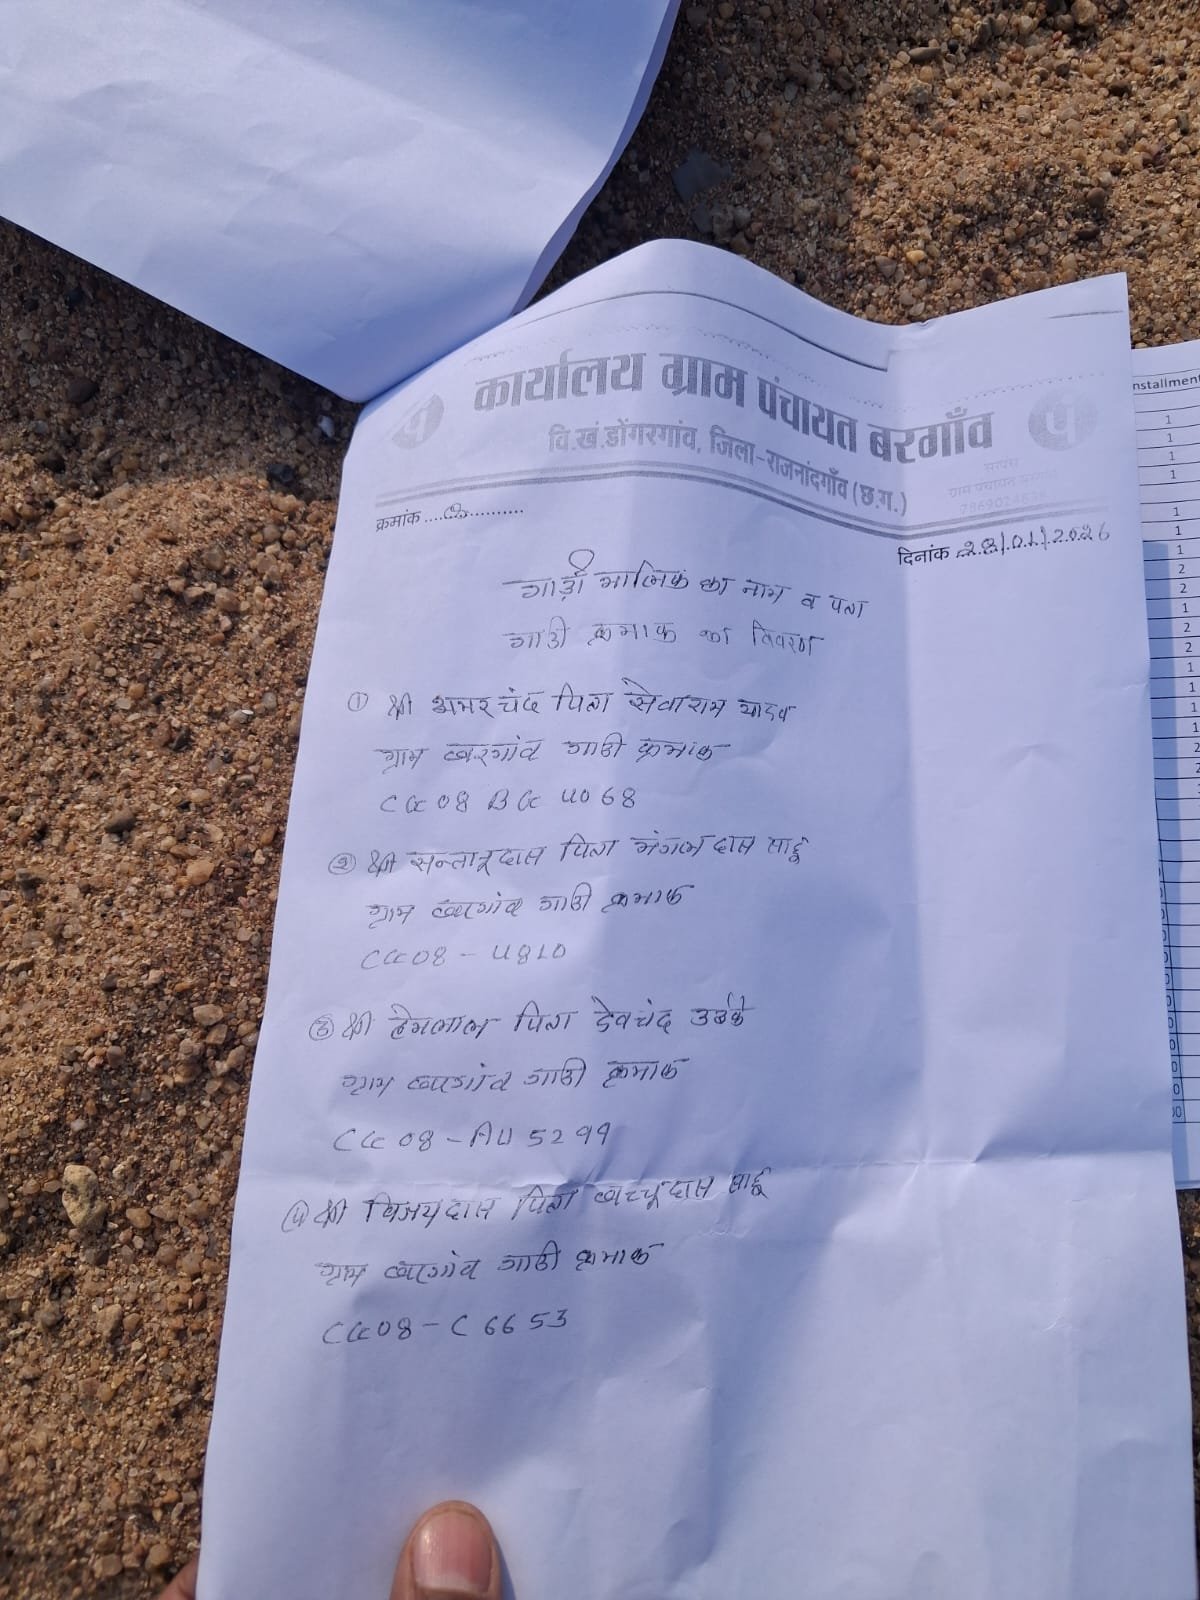 कार्यालय ग्राम पंचायत बरगाँव
वि.खं.डोंगरगांव, जिला-राजनांदगाँव (छ.ग.)
सरपंच
ग्राम पंचायत बरगांव
क्रमांक ....
दिनांक 28/01/2026
गाड़ी मालिक का नाम व पता
गाडी क्रमाक का विवरण
① श्री अमर चंद पिता सेवाराम यादव
ग्राम बरगांव गाडी क्रमाक
CG 08 BG 4068
② श्री सन्तानूदास पिता मंगलदास साहू
ग्राम बरगांव गाडी क्रमाक
CG08 - 4810
③ श्री हेमलाल पिता देवचंद उईके
ग्राम बरगांव गाडी क्रमाक
CG 08 - AU 5299
④ श्री विजयदास पिता बच्चूदास साहू
ग्राम बरगांव गाडी क्रमाक
CG08 - C 6653
nstallment
1
1
1
1
1
1
1
2
2
1
2
2
1
1
1
1
2
2
1